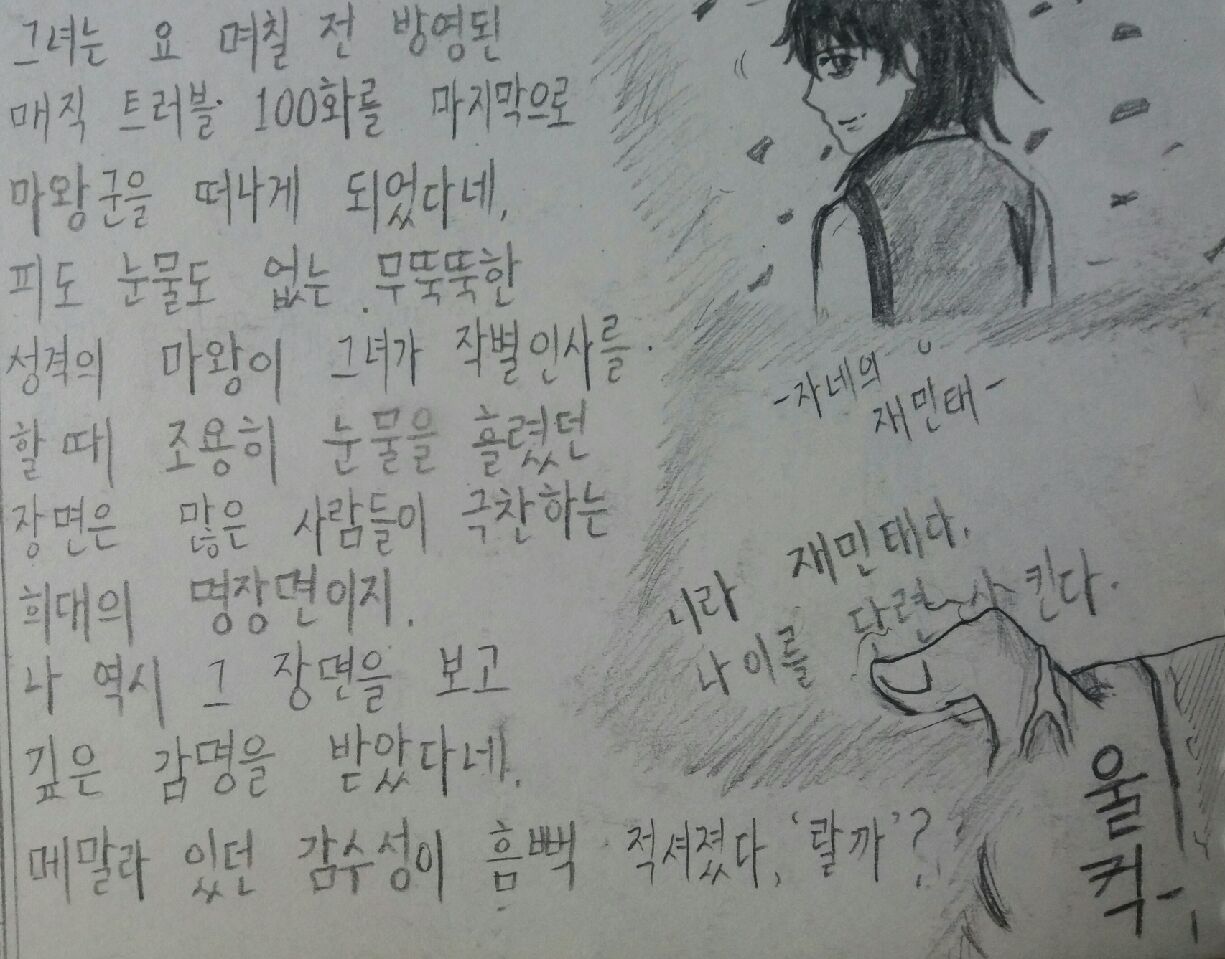 그녀는 요 며칠 전 방영된
매직 트러블 100화를 마지막으로
마왕군을 떠나게 되었다네,
피도 눈물도 없는 무뚝뚝한
성격의 마왕이 그녀가 작별인사를
할 때 조용히 눈물을 흘렸던
장면은 많은 사람들이 극찬하는
희대의 명장면이지.
나 역시 그 장면을 보고
깊은 감명을 받았다네.
메말라 있던 감수성이 흠뻑 적셔졌다, '랄까'?
-자네의
재민태-
재민태다.
나이를 단련시킨다.
울컥